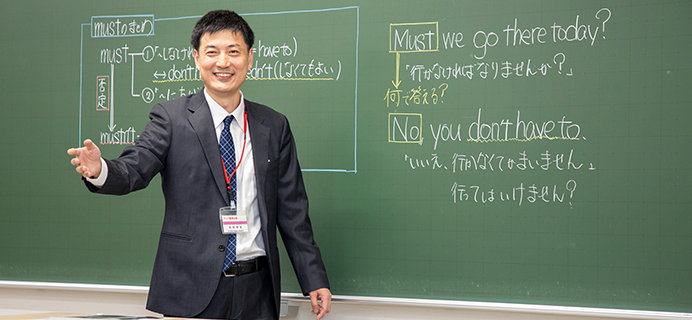 mustのまとめ
must
①「〜しなけれ
have to)
↔don't
n't(しなくてもよい)
否定
②
Must we go there today?
「行かなければなりませんか?」
何て答える?
No, you don't have to.
「いいえ、行かなくてかまいません」
行ってはいけません?